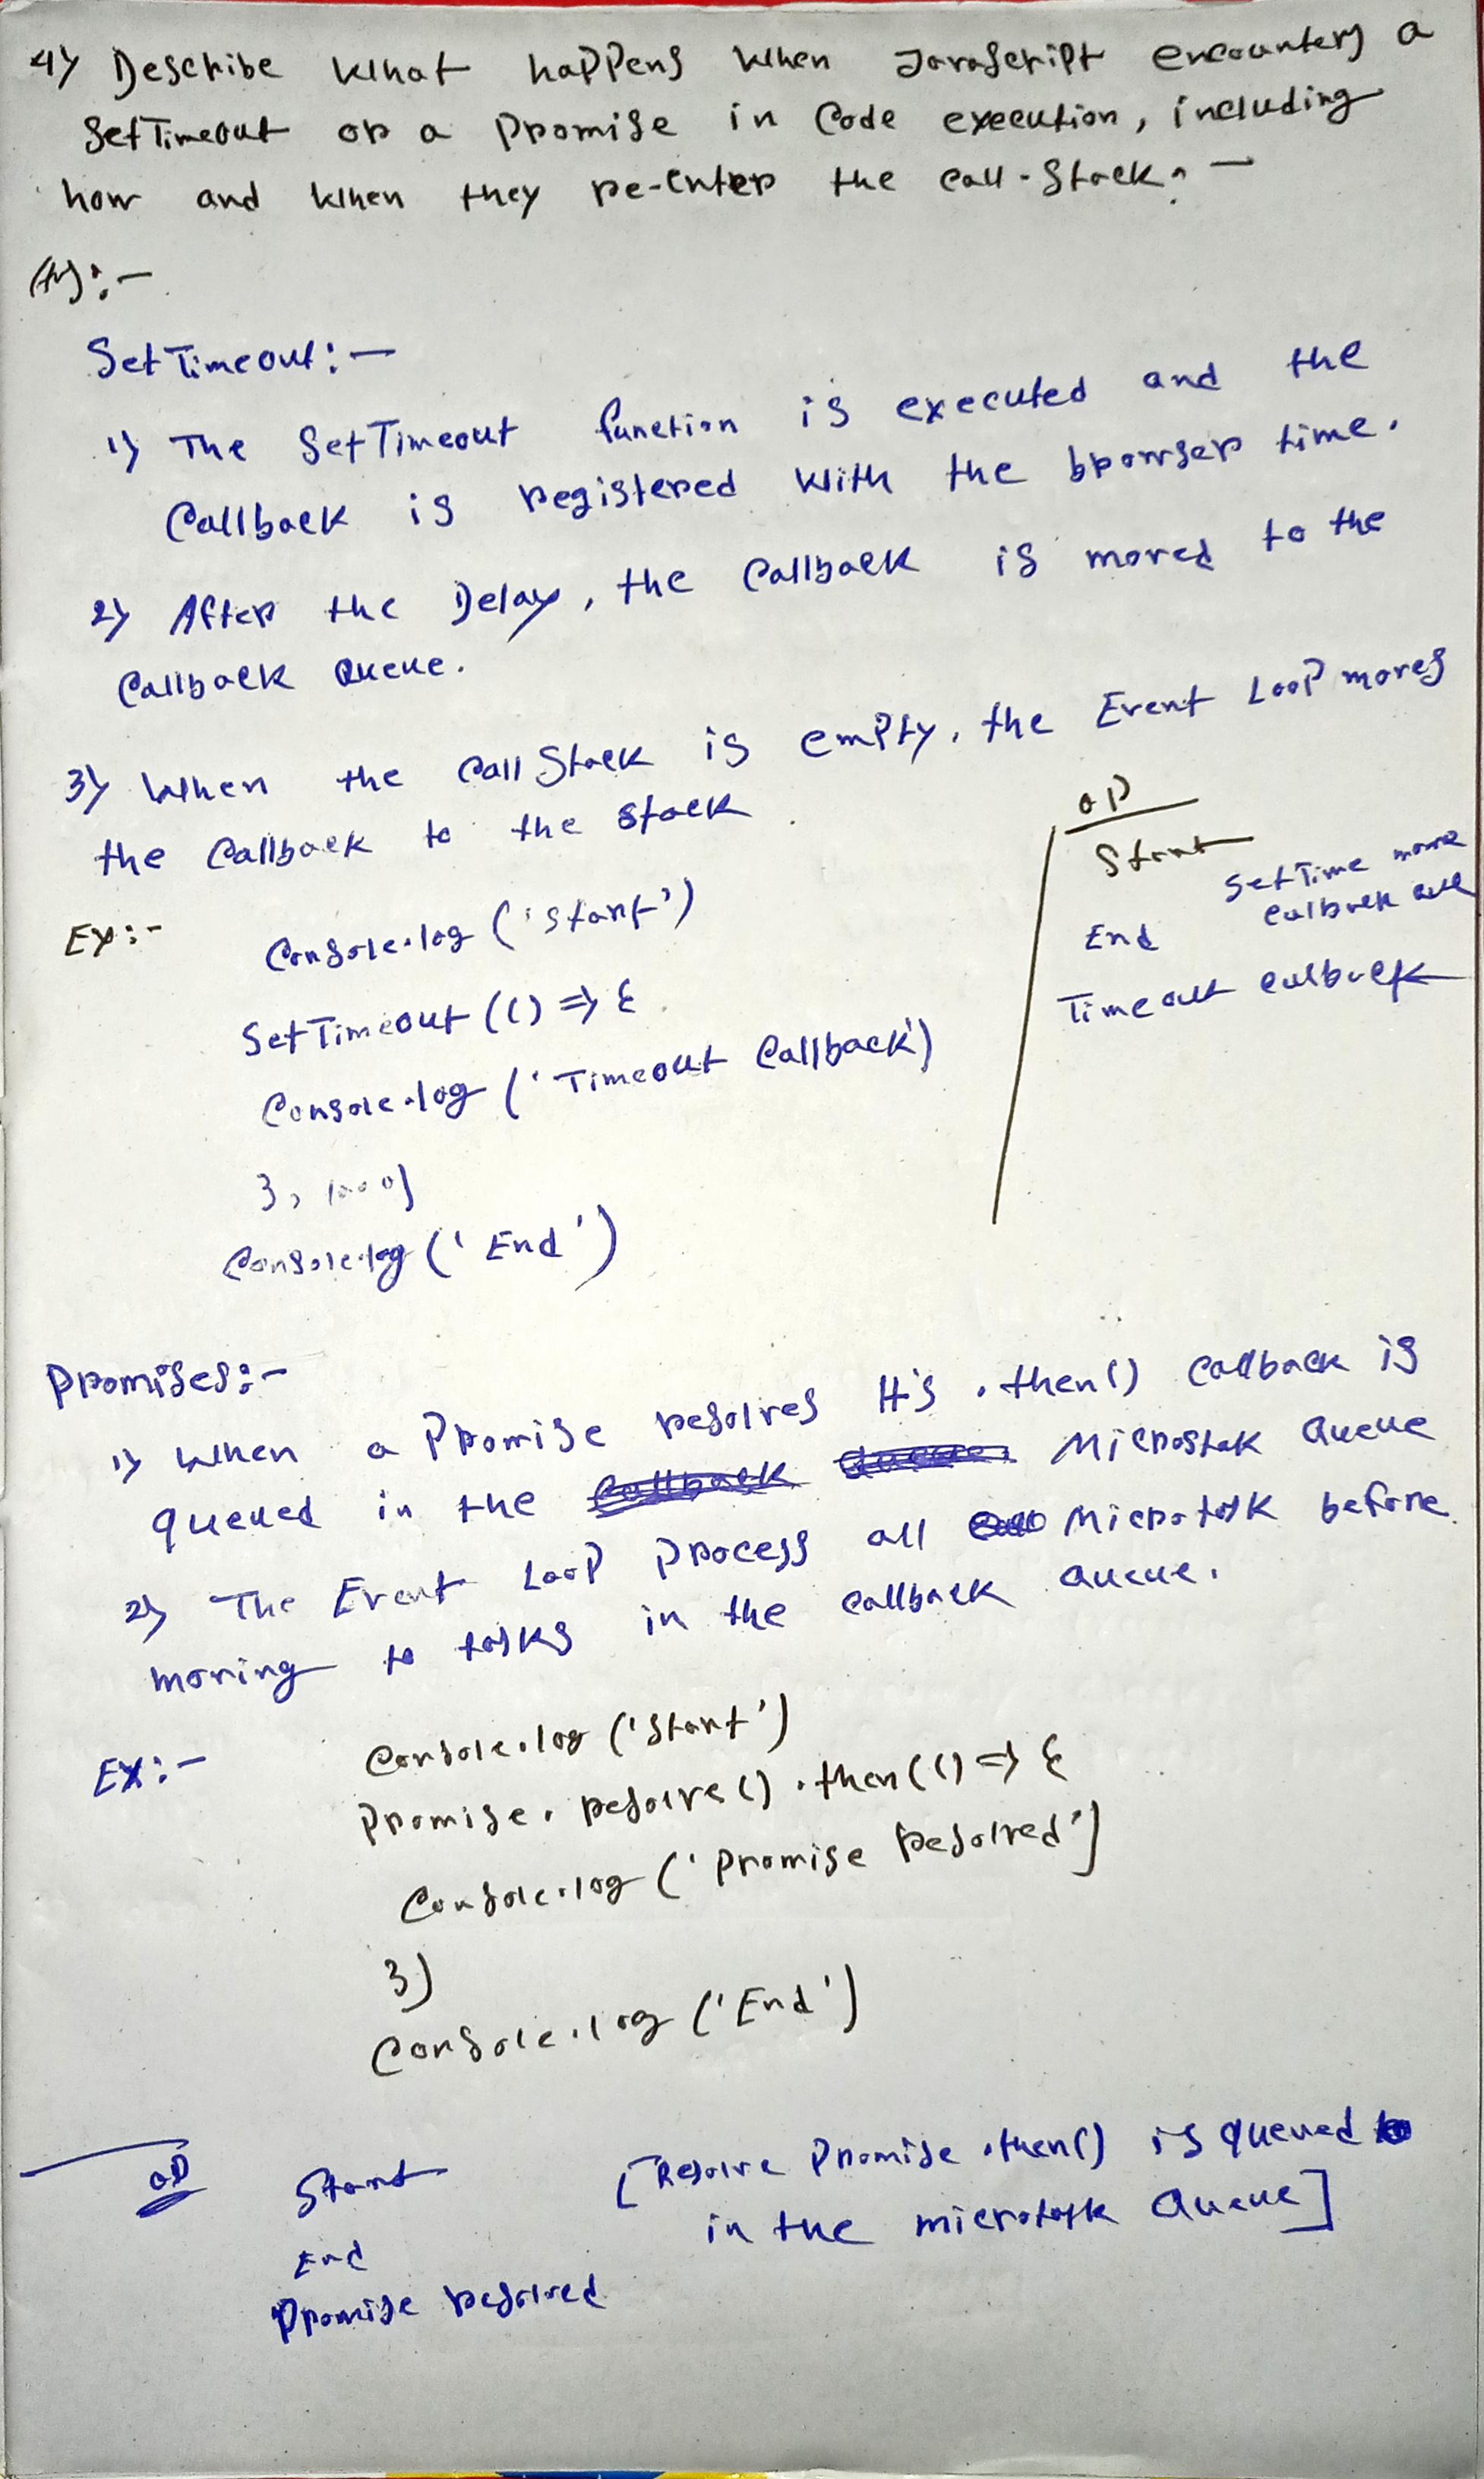 4) Describe what happens when JavaScript encounters a
SetTimeout or a Promise in Code execution, including
how and when they re-enter the call-stack? -
Ans:-
SetTimeout:-
1) The SetTimeout function is executed and the
Callback is registered with the browser time.
2) After the Delay, the Callback is moved to the
Callback Queue.
3) When the Call Stack is empty, the Event Loop moves
the Callback to the stack.
Ex:- Console.log ('Start')
SetTimeout (() => {
Console.log ('Timeout Callback')
}, 1000)
Console.log ('End')
OP
Start
SetTime move
callback
End
Timeout callback
Promises:-
1) When a Promise resolves It's .then() Callback is
queued in the Callback Queue Microstak Queue
2) The Event Loop Process all Microtask before
moving to tasks in the callback queue.
Ex:- Console.log ('Start')
Promise.resolve().then(() => {
Console.log ('Promise Resolved')
})
Console.log ('End')
OP Start [Resolve Promise .then() is queued
in the microtask Queue]
End
Promise Resolved